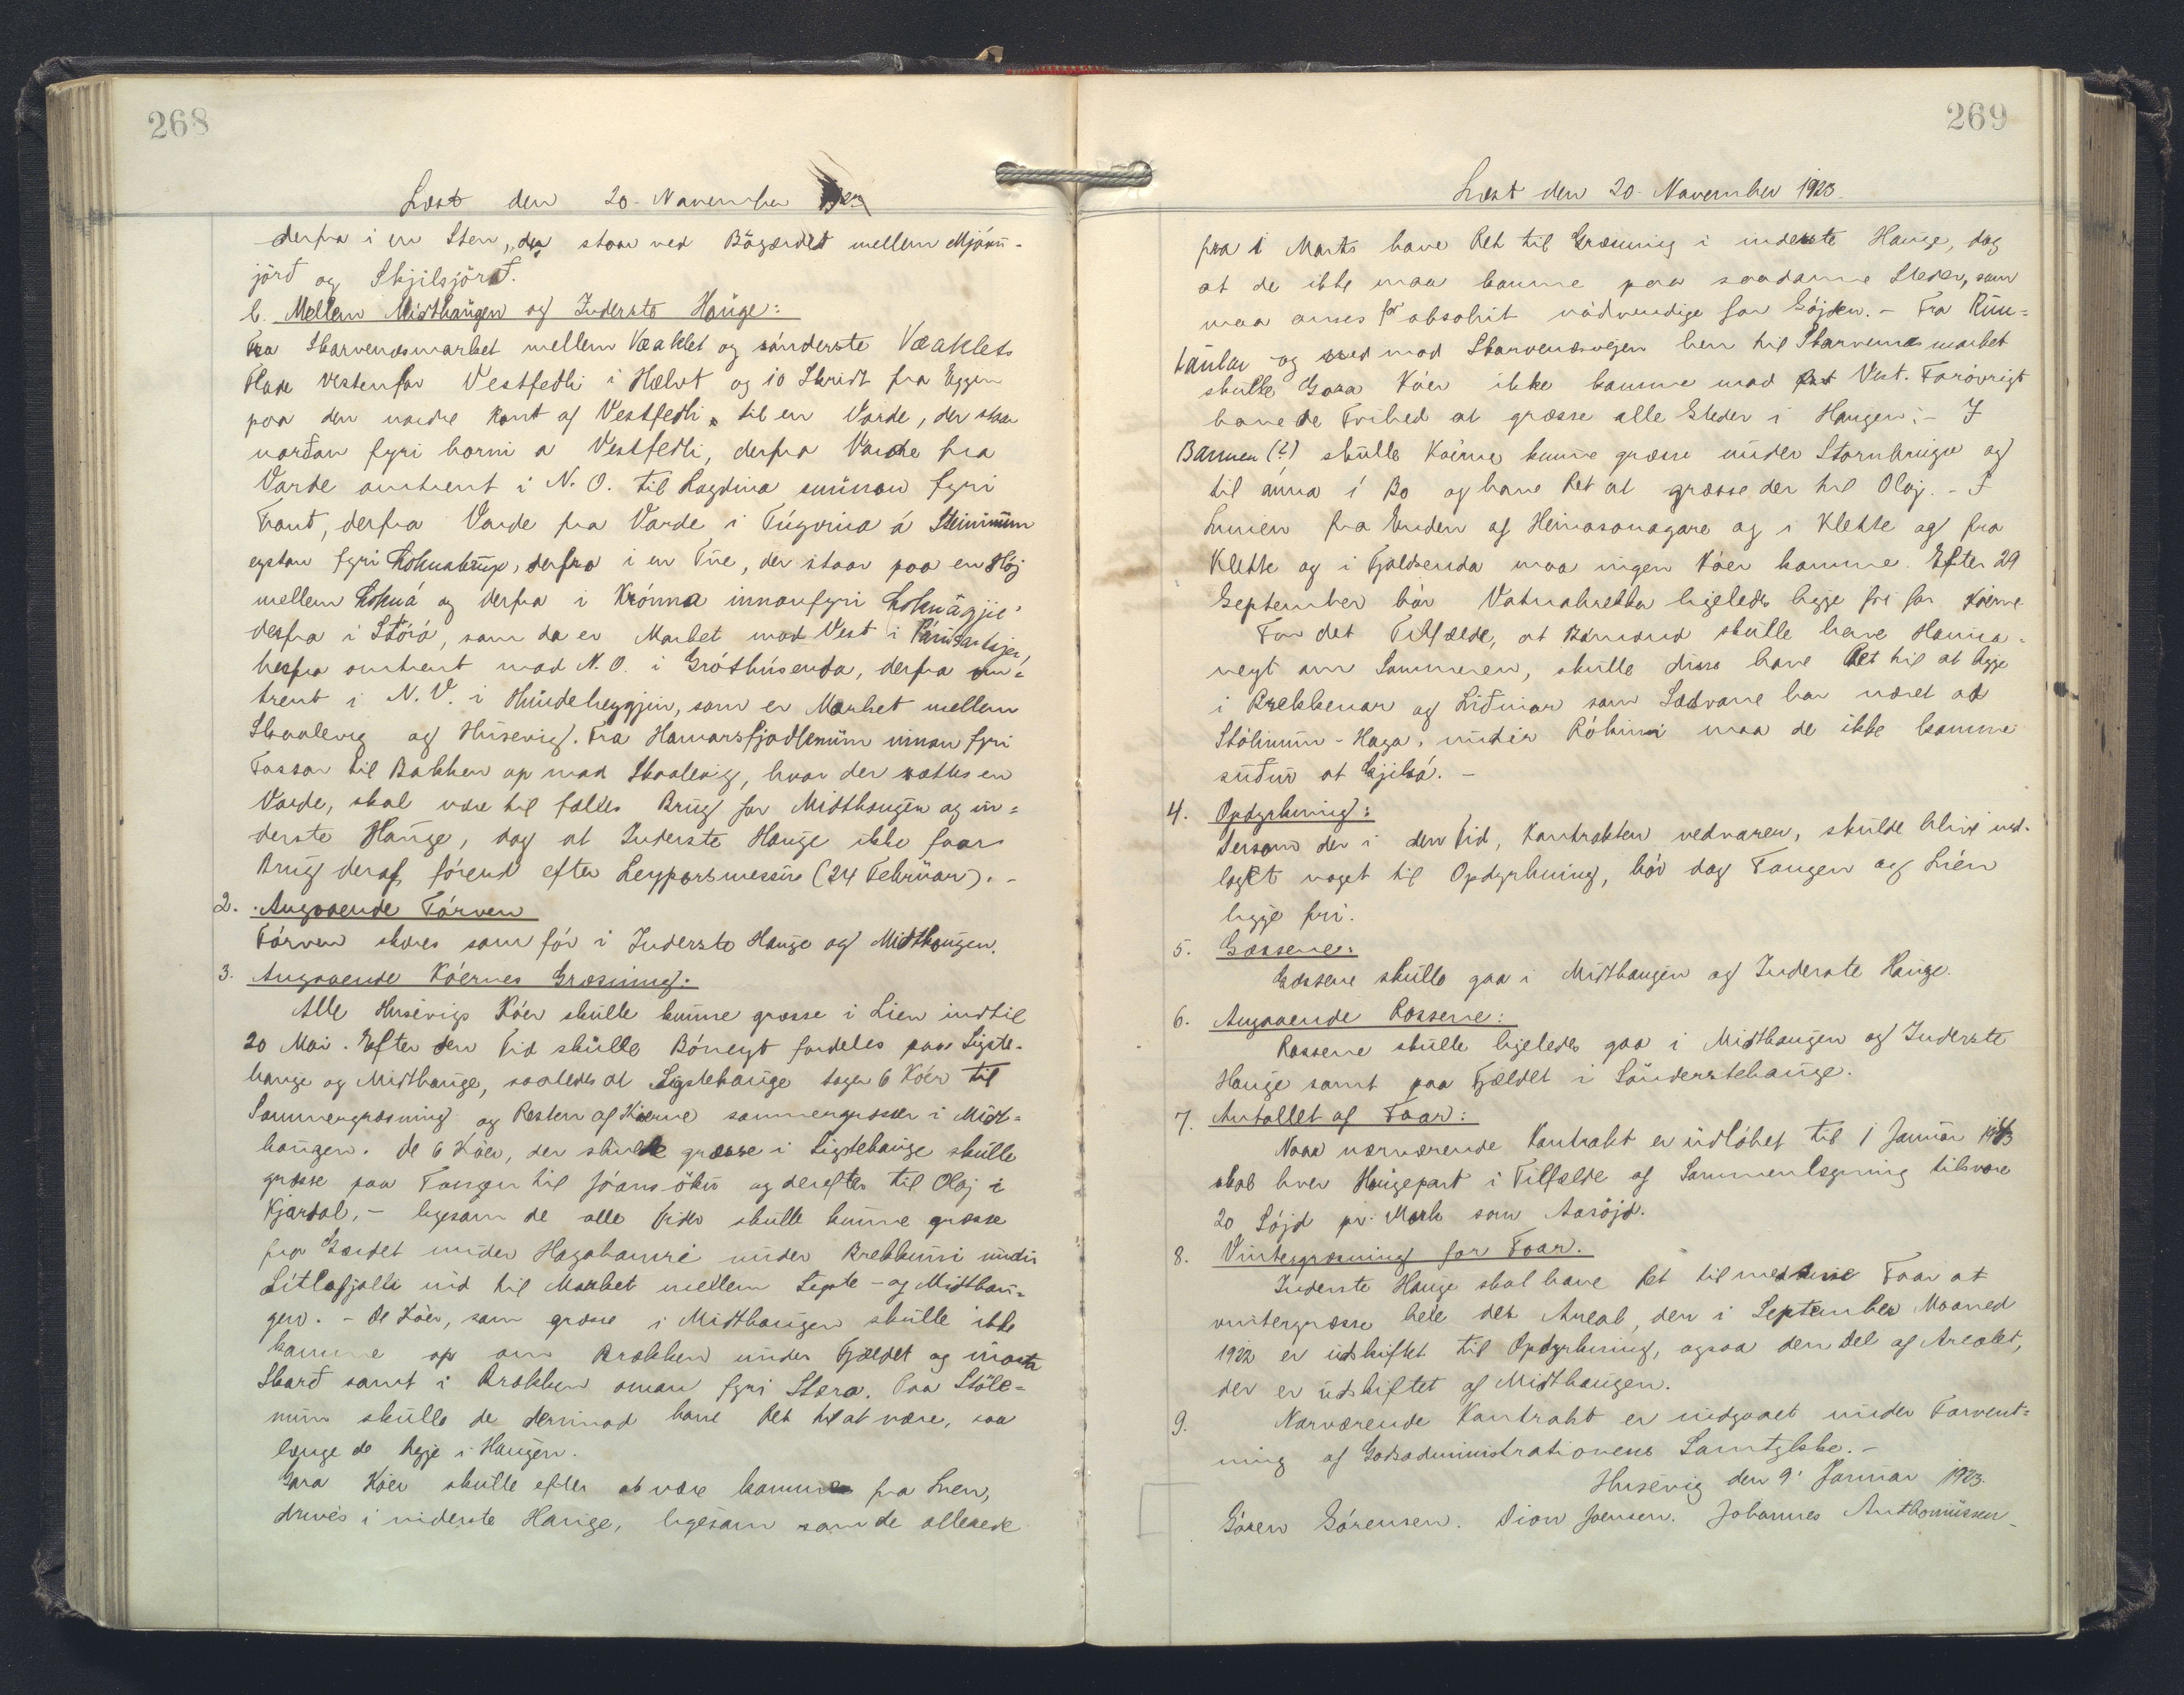 268
Læst den 20. November
derfra i en Sten, der staar ved Bögærdet mellem Mjóvu-
jörð og Skjilsjörð.
b. Mellem Midthaugen og Inderste Hauge:
Fra Skarvenæsmarket mellem Væaklet og sönderste Væaklets
Flade vestenfor Vestfedli i Hælvt og 10 Skridt fra Eggen
paa den nordre Kant af Vestfedli til en Varde, der staar
norðan fyri horni a Vestfedli, derfra Varde fra
Varde omtrent i N. O. til Lagdina sunnan fyri
Trant, derfra Varde fra Varde i Túgvina á Steinimum
eystan fyri, derfra i en Tue, der staar paa en Höj
mellem Lokuá og derfra i Krónna innanfyri
derfra i Stórá, som da er Market mod Vest i
herfra omtrent mod N. O. i Gróthúsenda, derfra om-
trent i N. V. i Hundeheyggjin, som er Market mellem
Skaalevig og Húsevig. Fra Hamarsfjodlenum innan fyri
Fossar til Bakken op mod Skaalevig, hvor der sættes en
Varde, skal være til fælles Brug for Midthaugen og in-
derste Hauge, dog at Inderste Hauge ikke faar
Brug deraf, förend efter Leyparsmessu (24 Februar). -
2. Angaaende Törven
Törven skæres som för i Inderste Hauge og Midthaugen.
3. Angaaende Köernes Græsning:
Alle Husevigs Köer skulle kunne græsse i Lien indtil
20 Mai. Efter den Tid skulle Bóneyt fordeles paa Ligste-
hauge og Midthauge, saaledes at Ligstehauge tager 6 Köer til
Sommergræsning og Resten af Köerne sommergræsser i Midt-
haugen. De 6 Köer, der skulle græsse i Ligstehauge skulle
græsse paa Tangen til Jóansöku og derefter til Olaj i
Kjardal, - ligesom de alle Tider skulle kunne græsse
fra Gærdet under Hagahamri under Brekkuni undir
Litlafjalli ind til Market mellem Ligste- og Midthau-
gen. - De Köer, som græsse i Midthaugen skulle ikke
komme op om Brekken under Fjældet og
Skarð samt i Brekken oman fyri Stæra. Paa Stöle-
num skulle de derimod have Ret til at være, saa
længe de ligge i Haugen.
Gara Köer skulle efter at være komne fra Lien,
drives i inderste Hauge, ligesom som de allerede
269
Læst den 20. November 1923.
fra 1 Marts have Ret til Græsning i inderste Hauge, dog
at de ikke maa komme paa saadanne Steder, som
maa anses for absolut nödvendige for Söjden. - Fra Run-
tanlar og ned mod Skarvenæsvejen hen til Skarvenæsmarket
skulle Gara Köer ikke komme mod Vest. Forövrigt
have de Frihed at græsse alle Steder i Haugen: - I
Barmen (?) skulle Köerne kunne græsse under Stornbrugv og
til ánna í Bo og have Ret at græsse der til Olaj. - I
Linien fra Enden af Heimasonagare og i Klette og fra
Klette og i Fjaldsenda maa ingen Köer komme. Efter 29
September bör Vatnabrekka ligeledes ligge fri for Köerne
For det Tilfælde, at Bömænd skulle have Hauga-
neyt om Sommeren, skulle disse have Ret til at ligge
i Brekkenar og Liðinar som Sædvane har været ad
Stólinum - Haga, undir Rókini maa de ikke komme
suður at Gjilsá. -
4. Opdyrkning:
Dersom der i den Tid, Kontrakten vedvarer, skulde blive ud-
lagt noget til Opdyrkning, bör dog Tangen og Lien
ligge fri.
5. Gæssene:
Gæssene skulle gaa i Midthaugen og Inderste Hauge.
6. Angaaende Rossene:
Rossene skulle ligeledes gaa i Midthaugen og Inderste
Hauge samt paa Fjældet i Sönderstehauge.
7. Antallet af Faar:
Naar nærværende Kontrakt er udlöbet til 1 Januar
skal hver Haugepart i Tilfælde af Sammenlægning tilsvare
20 Söjd pr. Mark som Aasöjd.
8. Vintergræsning for Faar.
Inderste Hauge skal have Ret til med sine Faar at
vintergræsse hele det Areal, der i September Maaned
1922 er udskiftet til Opdyrkning, ogsaa den Del af Arealet,
der er udskiftet af Midthaugen.
9. Nærværende Kontrakt er indgaaet under Forvent-
ning af Godsadministrationens Samtykke. -
Husevig den 9. Januar 1923.
Sören Sörensen. Dion Joensen. Johannes Anthoniussen